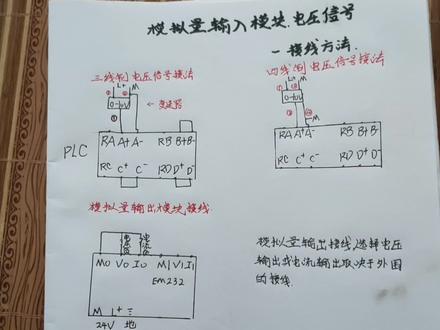 模拟量输入模块.电压信号
一接线方法.
三线制电压信号接法
四线制电压信号接法
L+ M
0-10V
变送器
PLC
RA A+ A- RB B+ B-
RC C+ C- RD D+ D-
L+
0-10V
M
RA A+ A- RB B+ B-
RC C+ C- RD D+ D-
模拟量输出模块接线
M0 V0 I0 M1 V1 I1
EM232
M L+ ⏚
24V 地
模拟量输出接线,选择电压
输出或电流输出取决于外围
的接线.